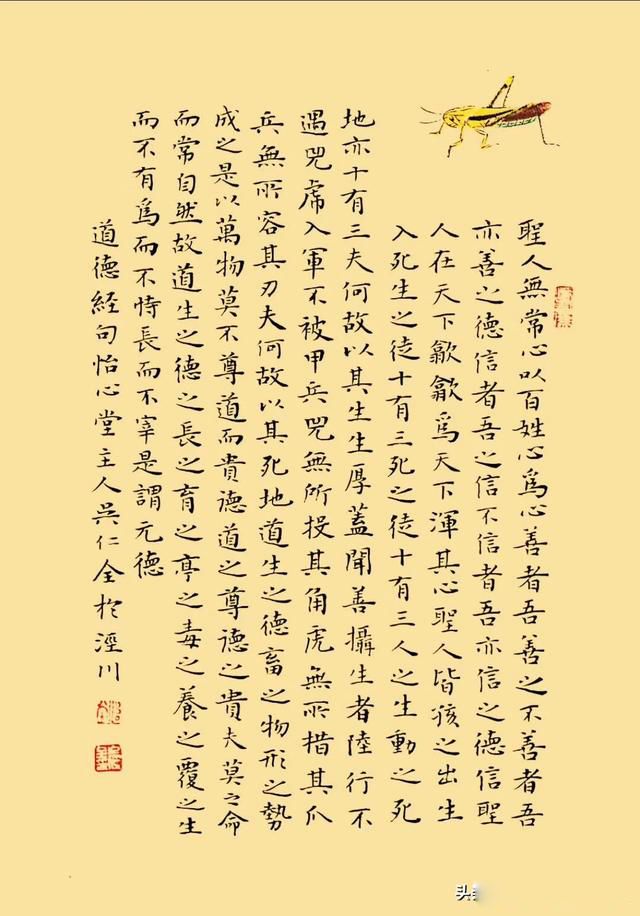 聖人無常心以百姓心爲心善者吾善之不善者吾
亦善之德信者吾之信不信者吾亦信之德信聖
人在天下歙歙爲天下渾其心聖人皆孩之出生
入死生之徒十有三死之徒十有三人之生動之死
地亦十有三夫何故以其生生厚蓋聞善攝生者陸行不
遇兕虎入軍不被甲兵兕無所投其角虎無所措其爪
兵無所容其刃夫何故以其死地道生之德畜之物形之勢
成之是以萬物莫不尊道而貴德道之尊德之貴夫莫之命
而常自然故道生之德之長之育之亭之毒之養之覆之生
而不有爲而不恃長而不宰是謂元德
道德經句怡心堂主人吳仁全於涇川
头